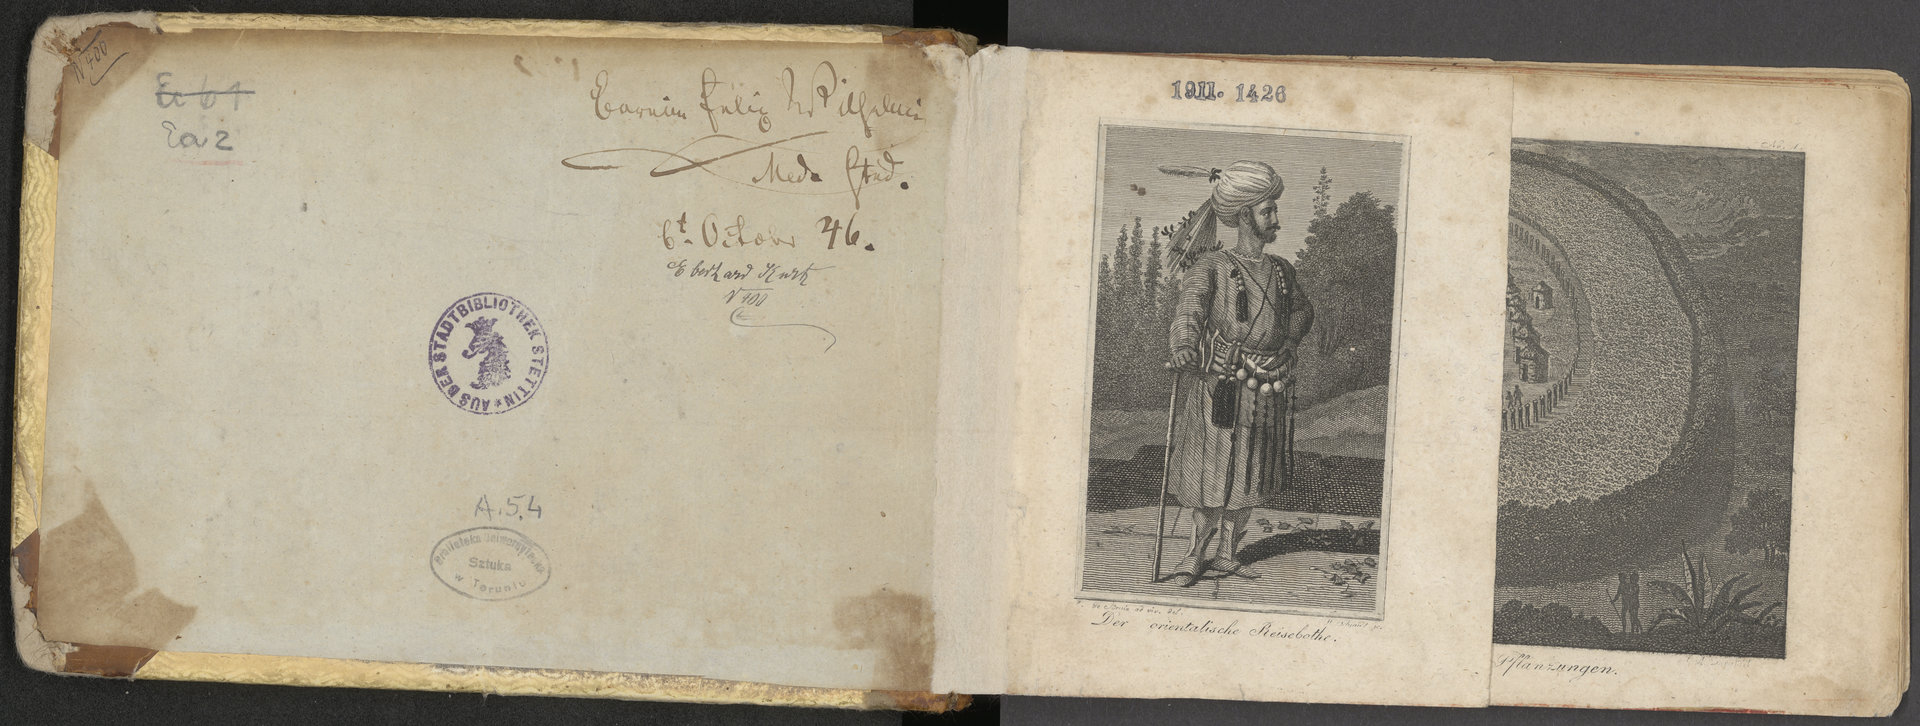 N 400
Ea 61
Ea 2
Felix Wilhelmi
Med. Stud.
6t. Octobr 46.
Eberhard Kurtz
N 400
AUS DER STADTBIBLIOTHEK STETTIN
A.5.4
Biblioteka Uniwersytecka
Sztuka
w Toruniu
1911. 1426
ad viv. del.
Der orientalische Reisebothe.
No. 1.
Pflanzungen.